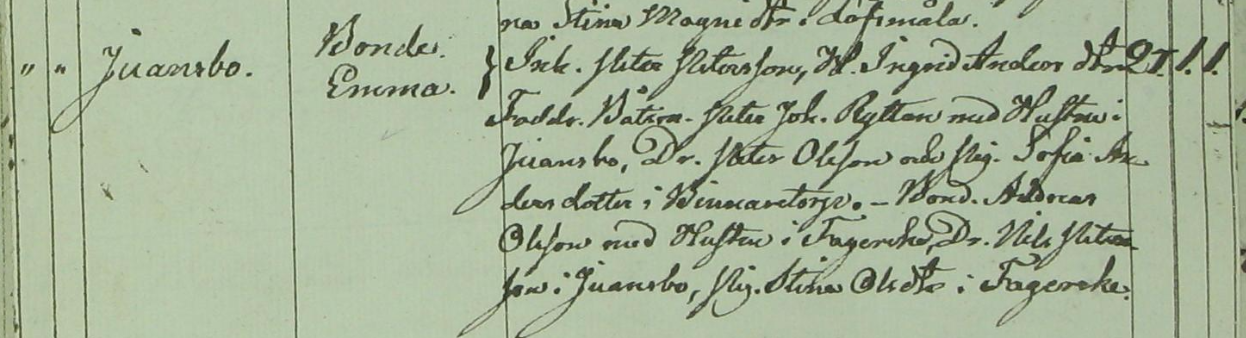 na Stina Magni dtr i Löfsmåla.
" " Juansbo. Bonde. Emma. } Ink. Peter Petersson, H. Ingrid Anders dtr 27. 1. 1.
Faddr. Båtsm. Peter Joh. Rytter med Hustru i
Juansbo, Dr. Peter Olsson och Pig. Sofia An
dersdotter i Binnaretorp. – Bond. Andreas
Olsson med Hustru i Fagerske, Dr. Nils Peters
son i Juansbo, Pig. Stina Olsdtr i Fagerske.